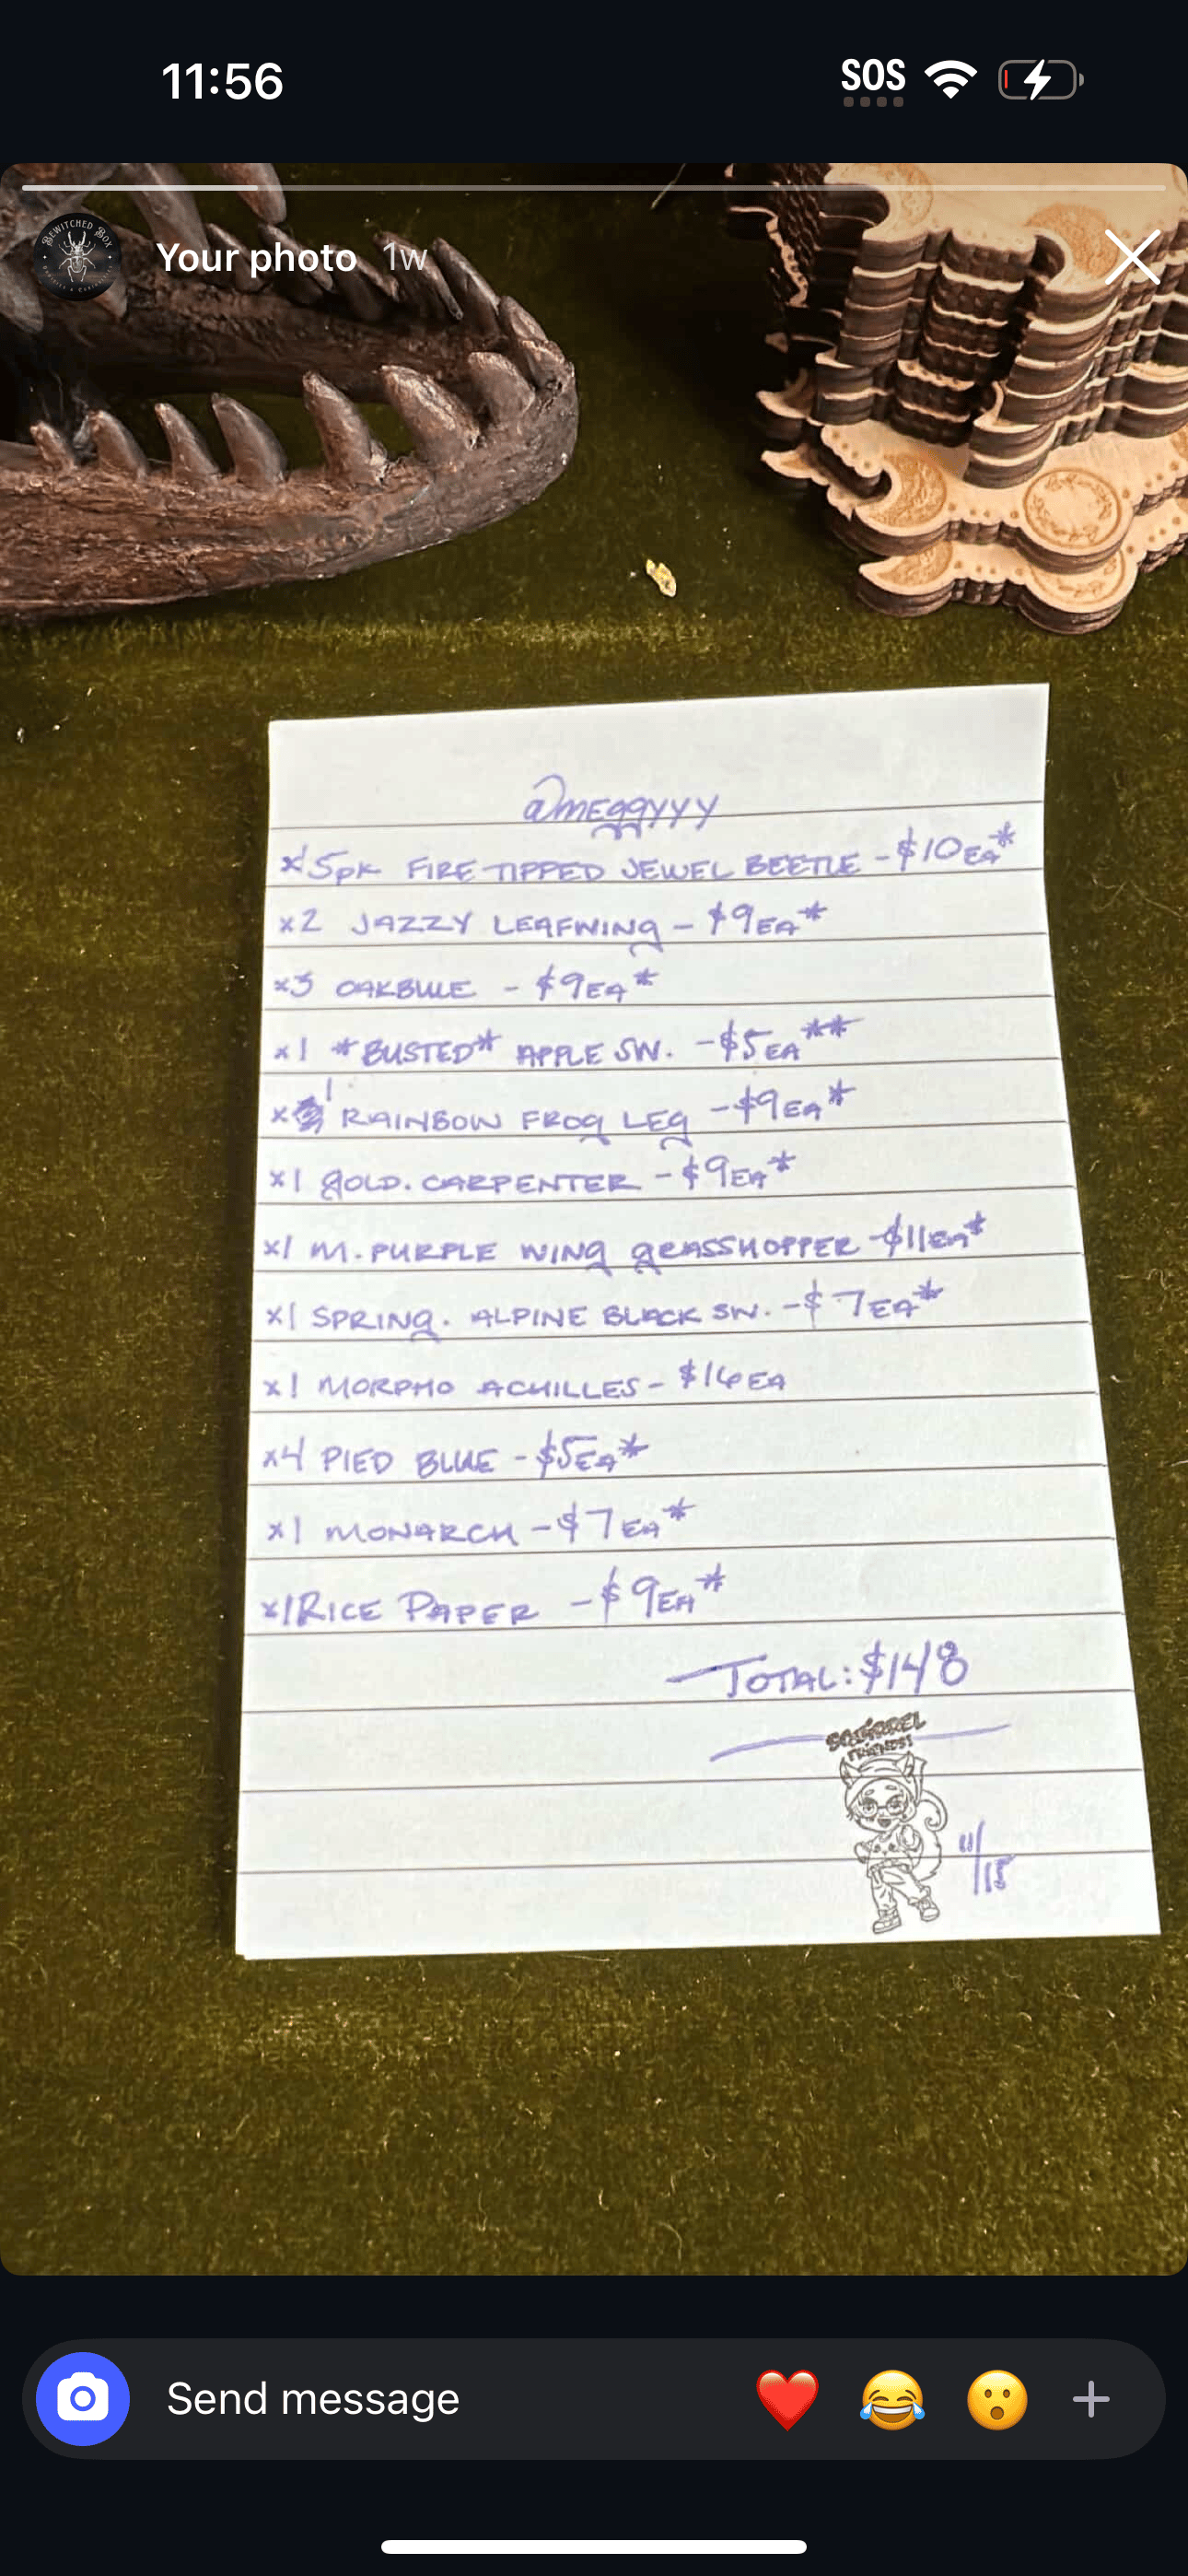 11:56
SOS
BEWITCHED BOX
Your photo 1w
@MEGGYYY
x1 5pk FIRE TIPPED JEWEL BEETLE - $10EA*
x2 JAZZY LEAFWING - $9EA*
x3 OAKBLUE - $9EA*
x1 *BUSTED* APPLE SW. - $5EA**
x1 RAINBOW FROG LEG - $9EA*
x1 GOLD. CARPENTER - $9EA*
x1 M. PURPLE WING GRASSHOPPER - $11EA*
x1 SPRING. ALPINE BLACK SW. - $7EA*
x1 MORPHO ACHILLES - $16EA
x4 PIED BLUE - $5EA*
x1 MONARCH - $7EA*
x1 RICE PAPER - $9EA*
TOTAL: $148
SQUIRREL
FRIENDS!
11/15
Send message